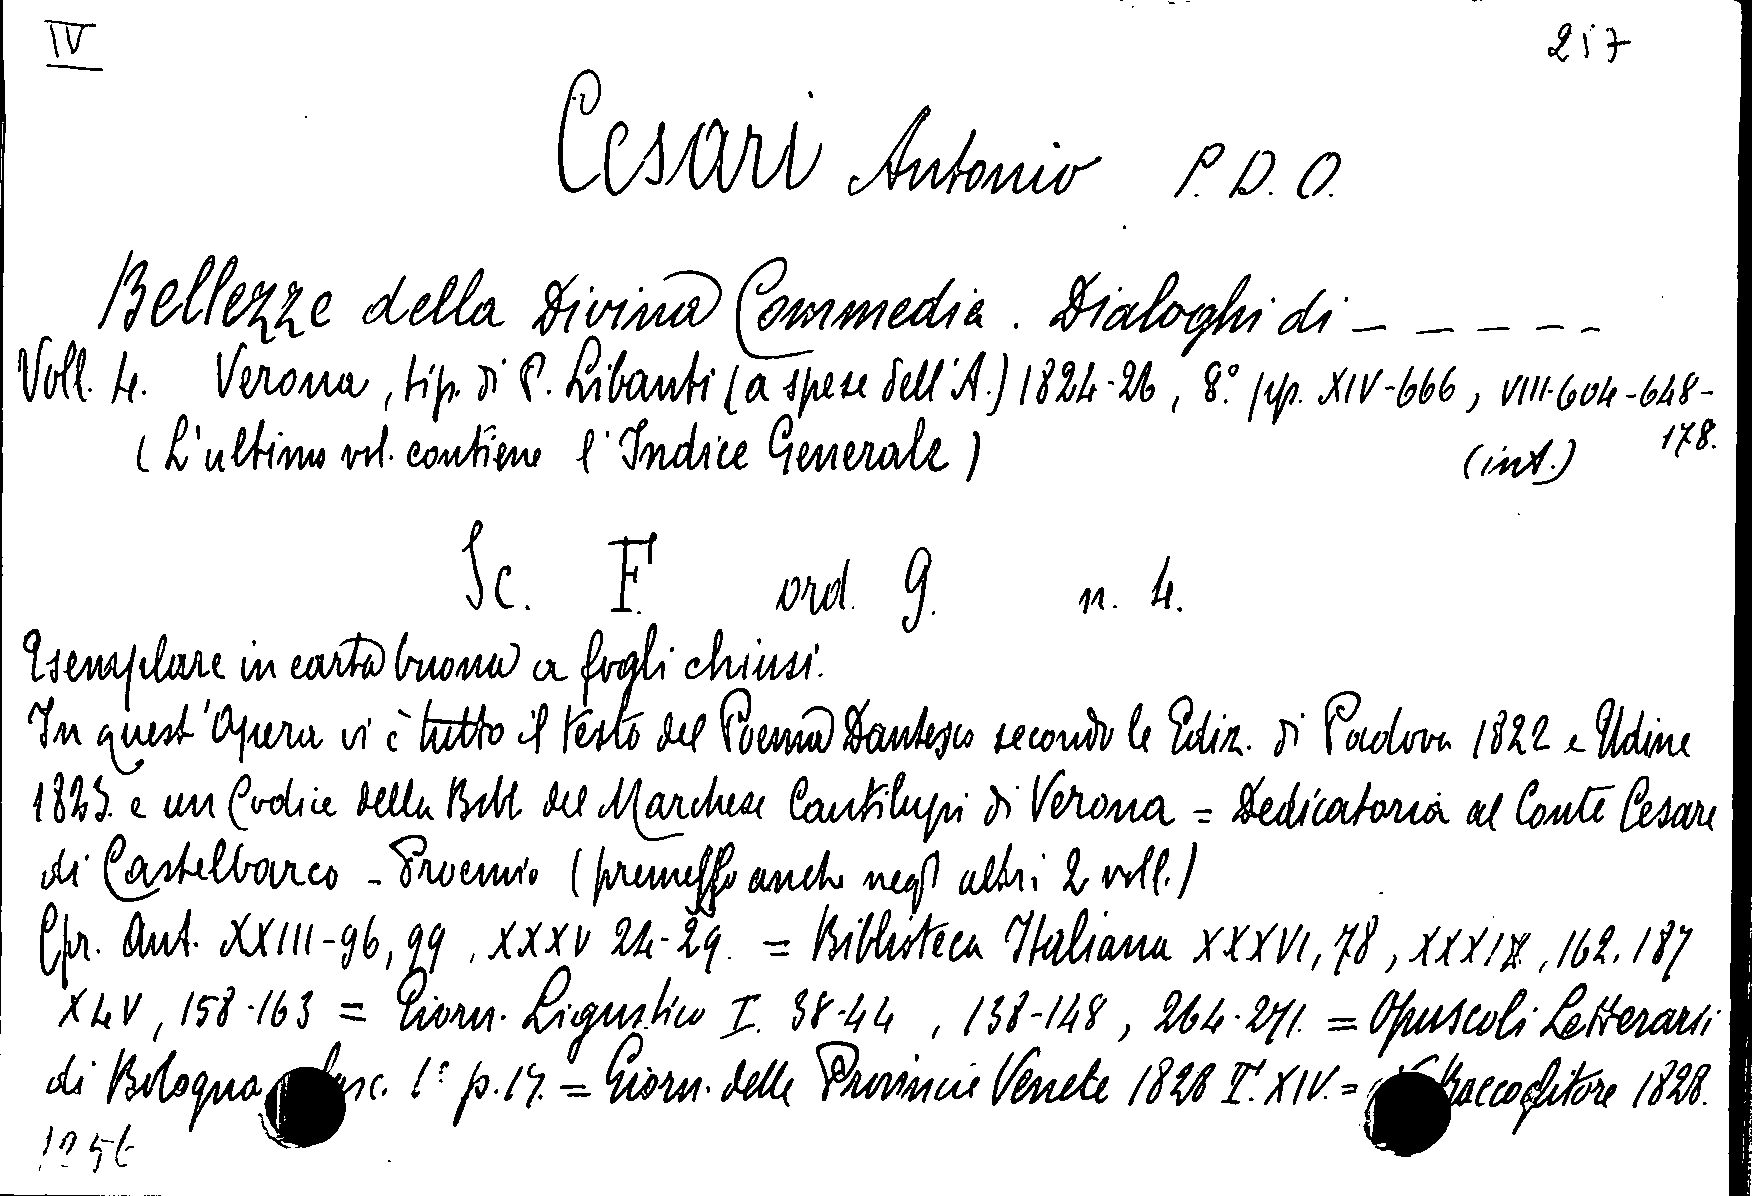 IV
217
Cesari Antonio P. D. O.
Bellezze della Divina Commedia. Dialoghi di – – – – –
Voll. 4. Verona, tip. di P. Libanti (a spese dell'A.) 1824-26, 8° pp. XIV-666, VIII-604-648-
178.
(L'ultimo vol. contiene l'Indice Generale) (int.)
Sc. F. ord. 9. n. 4.
Esemplare in carta buona a fogli chiusi.
In quest'Opera vi è tutto il testo del Poema Dantesco secondo le Ediz. di Padova 1822 e Udine
1823. e un Codice della Bibl del Marchese Cantilupi di Verona = Dedicatoria al Conte Cesare
di Castelbarco - Proemio (premesso anche negl altri 2 voll.)
Cfr. Ant. XXIII-96, 99, XXXV 24-29. = Biblioteca Italiana XXXVI, 78, XXXIX, 162. 187
XLV, 158-163 = Giorn. Ligustico I. 38-44, 138-148, 264-271. = Opuscoli Letterarii
di Bologna fasc. 1° p. 17. = Giorn. delle Provincie Venete 1828 T. XIV. = Raccoglitore 1828.